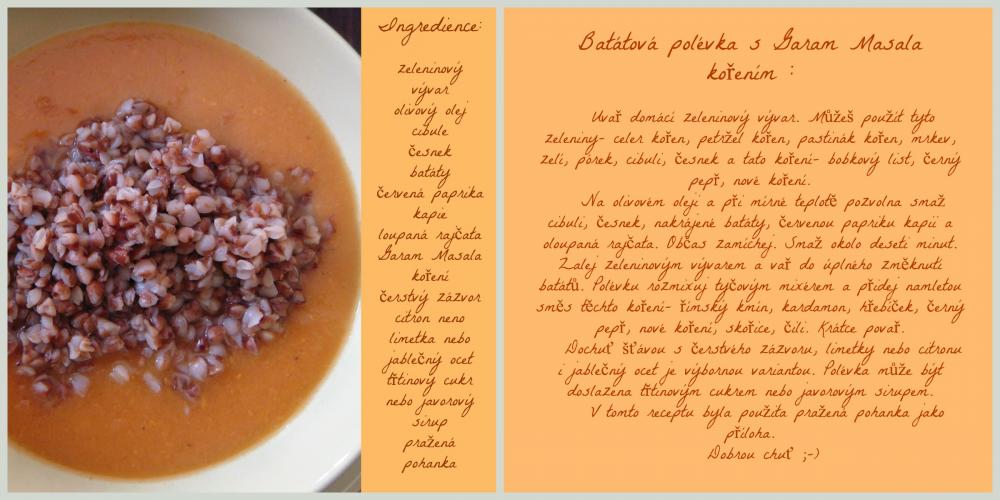 Ingredience:
zeleninový
vývar
olivový olej
cibule
česnek
batáty
červená paprika
kapie
loupaná rajčata
Garam Masala
koření
čerstvý zázvor
citron nebo
limetka nebo
jablečný ocet
třtinový cukr
nebo javorový
sirup
pražená
pohanka
Batátová polévka s Garam Masala
kořením :
Uvař domácí zeleninový vývar. Můžeš použít tyto
zeleniny- celer kořen, petržel kořen, pastinák kořen, mrkev,
zelí, pórek, cibuli, česnek a tato koření- bobkový list, černý
pepř, nové koření.
Na olivovém oleji a při mírné teplotě pozvolna smaž
cibuli, česnek, nakrájené batáty, červenou papriku kapii a
oloupaná rajčata. Občas zamíchej. Smaž okolo deseti minut.
Zalej zeleninovým vývarem a vař do úplného změknutí
batátů. Polévku rozmixuj tyčovým mixérem a přidej namletou
směs těchto koření- římský kmín, kardamon, hřebíček, černý
pepř, nové koření, skořice, čili. Krátce povař.
Dochuť šťávou s čerstvého zázvoru, limetky nebo citronu
i jablečný ocet je výbornou variantou. Polévka může být
doslazena třtinovým cukrem nebo javorovým sirupem.
V tomto receptu byla použita pražená pohanka jako
příloha.
Dobrou chuť ;-)